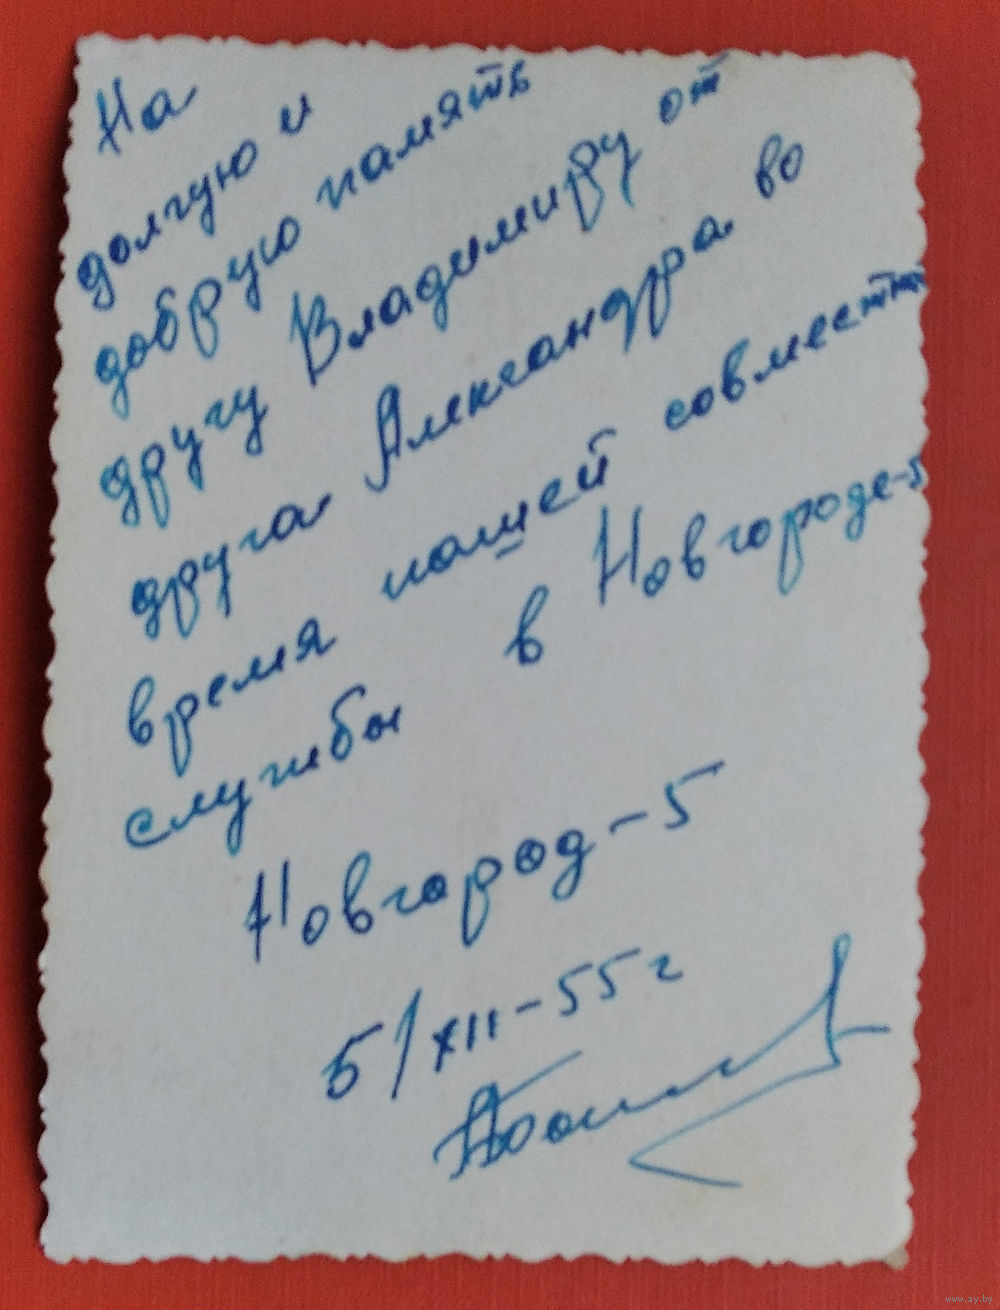 На
долгую и
добрую память
другу Владимиру от
друга Александра во
время нашей совместн
службы в Новгороде-5
Новгород-5
5/XII-55г
www.ay.by